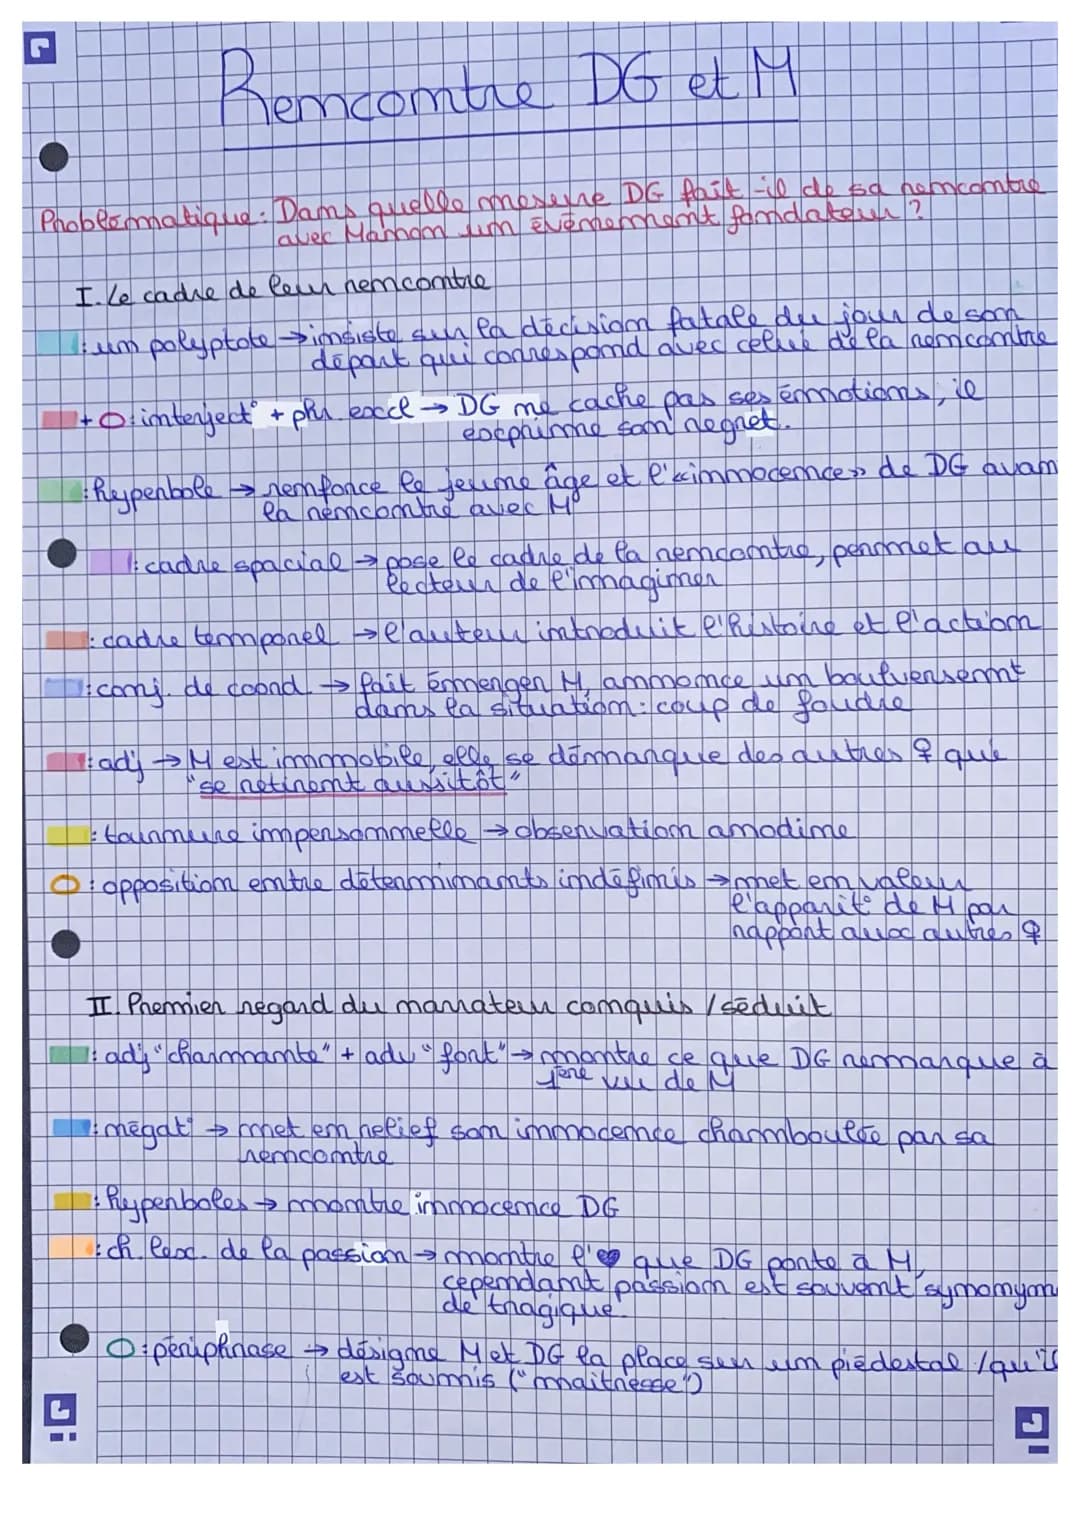 Rencontre DG et M
Problématique : Dans quelle mesure DG fait-il de sa rencontre
avec Manon un évènement fondateur ?
I. Le cadre de leur rencontre
: un polyptote → insiste sur la décision fatale du jour de son
départ qui correspond avec celui de la rencontre
+ O : interject° + phr. excl → DG ne cache pas ses émotions, il
exprime son regret.
: Hyperbole → renforce le jeune âge et l'«innocence» de DG avan
la rencontre avec M
: cadre spacial → pose le cadre de la rencontre, permet au
lecteur de l'immaginer
: cadre temporel → l'auteur introduit l'histoire et l'action
: conj. de coord → fait émerger M, annonce un boulversemnt
dans la situation : coup de foudre
: adj → M est immobile, elle se démarque des autres ♀ qui
"se retirent aussitôt"
: tournure impersonnelle → observation anodine
O : opposition entre déterminants indéfinis → met en valeur
l'apparit° de M par
rapport aux autres ♀
II. Premier regard du narrateur conquis / séduit
: adj "charmante" + adv "fort" → montre ce que DG remarque à
1ère vu de M
: négat° → met en relief son innocence chamboulée par sa
rencontre
: Hyperboles → montre innocence DG
: ch. lex. de la passion → montre l'❤ que DG porte à M,
cependant passion est souvent synonym
de tragique.
O : périphrase → désigne M et DG la place sur un piédestal / qu'il
est soumis ("maîtresse")